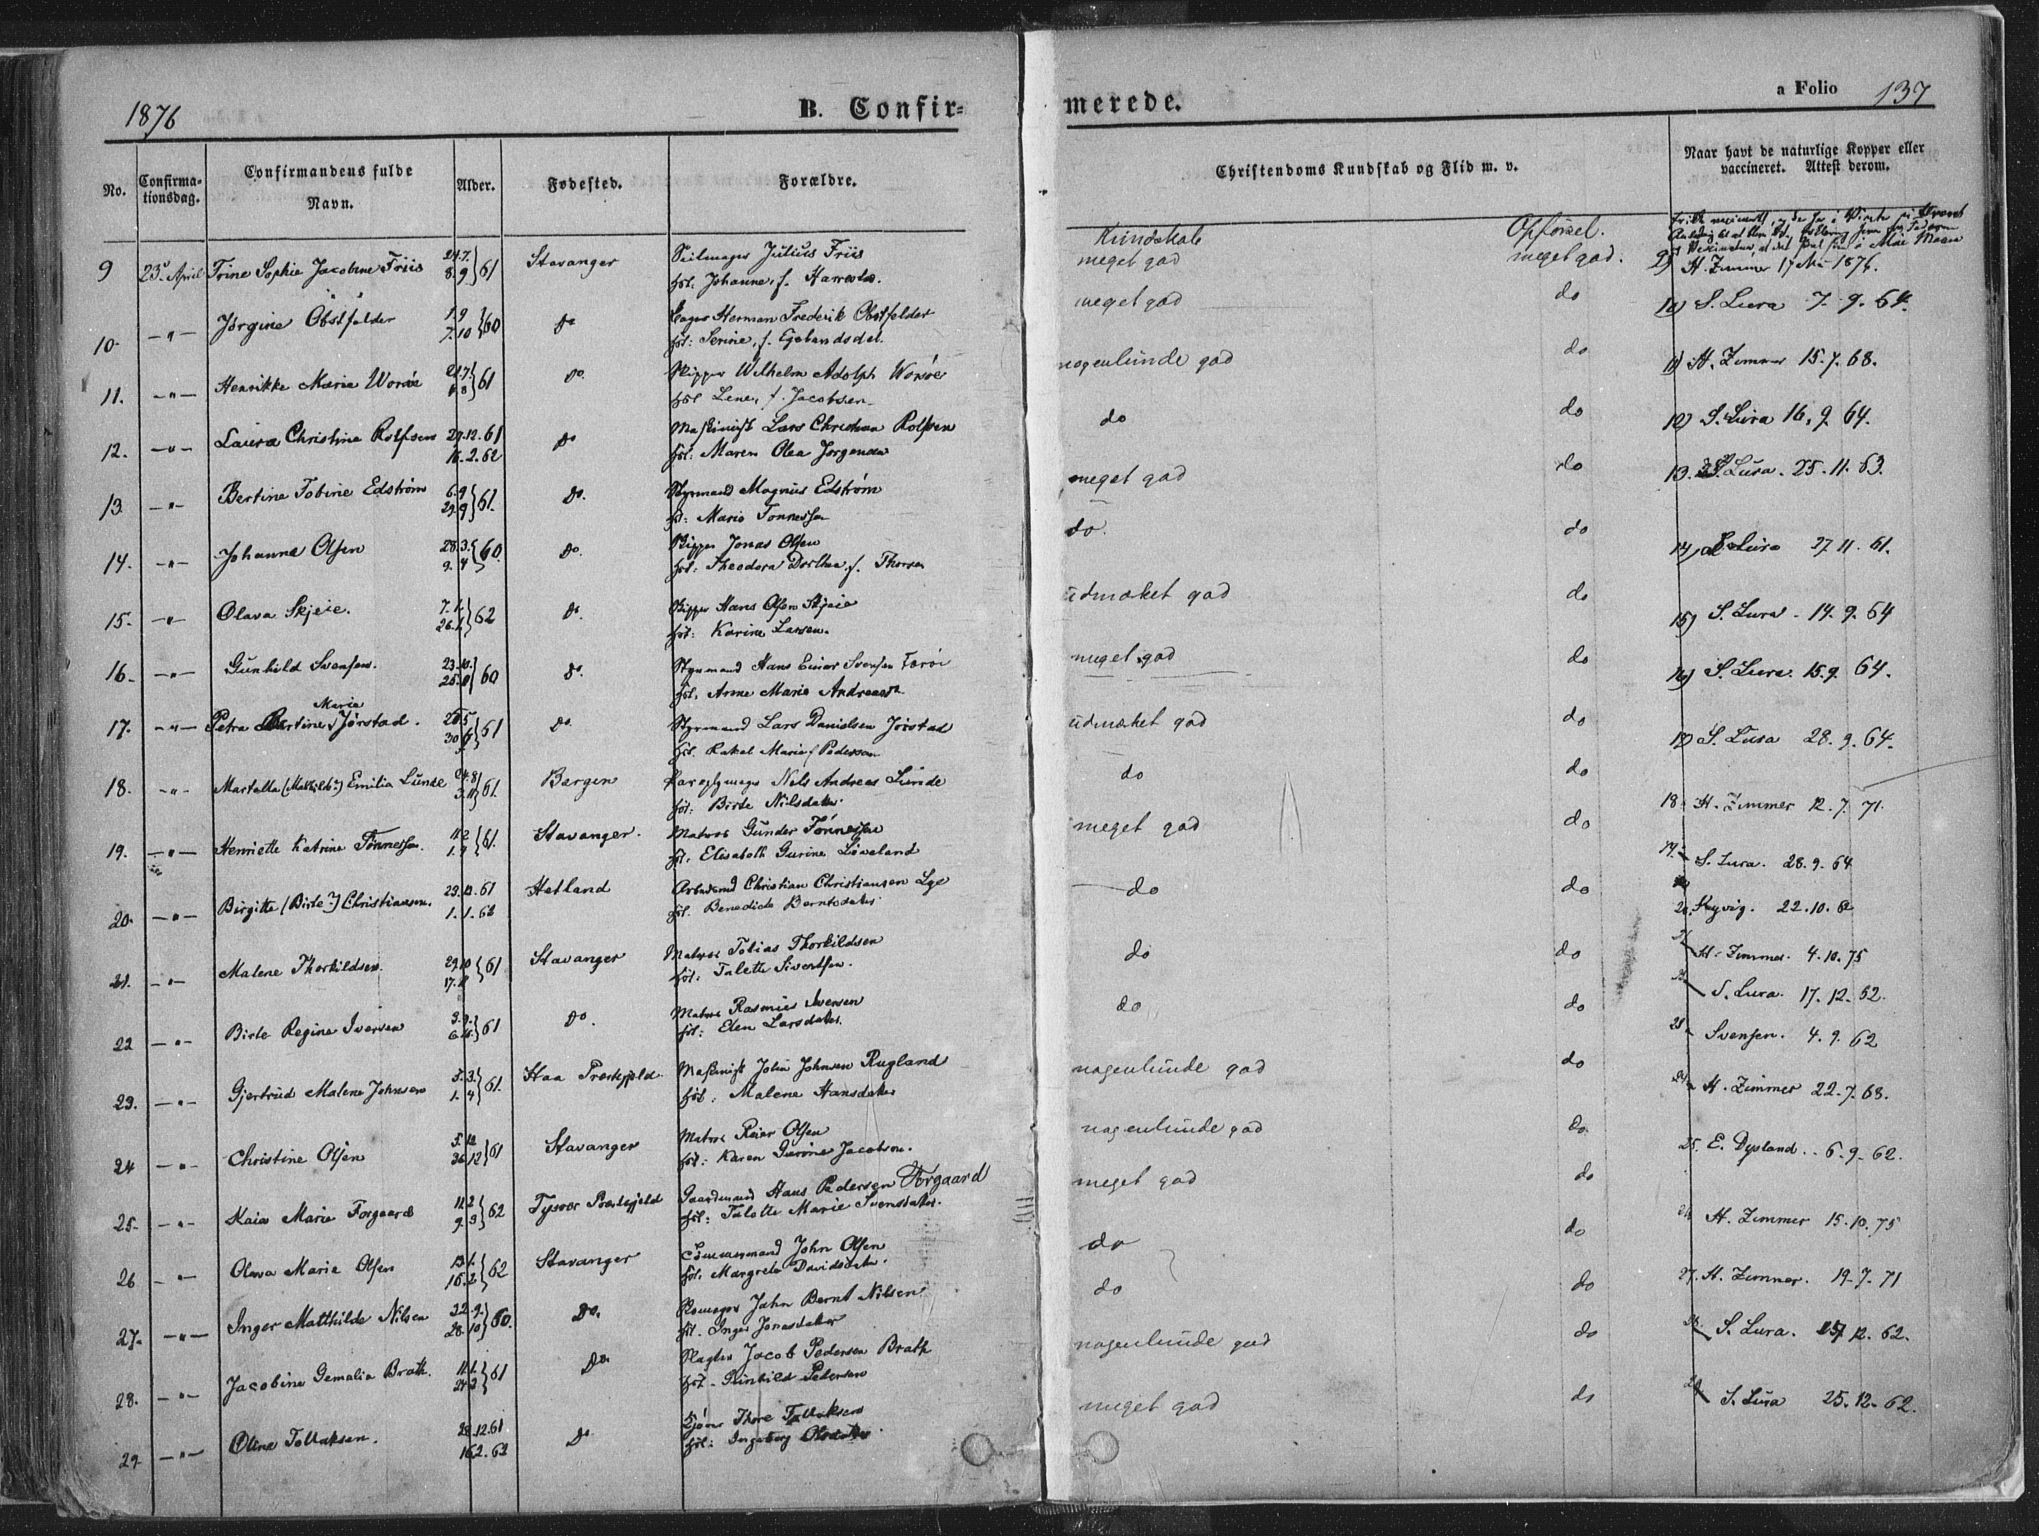 1876
B. Confir-
merede.
a Folio 137
No.
Confirma-
tionsdag.
Confirmandens fulde
Navn.
Alder.
Fødested.
Forældre.
Christendoms Kundskab og Flid m. v.
Naar havt de naturlige Kopper eller
vaccineret. Attest derom.
Kundskab
Opførsel.
9 23. April Trine Sophie Jacobine Friis 24.7. 8.9 } 61 Stavanger Seilmager Julius Friis
Johanne, f.
meget god meget god. 9) H. Zimmer 17 1876.
10. -"- Jørgine Obstfelder 1.9 7.10 } 60 do Bager Herman Frederik Obstfelder
Serine, f. Egelandsdal.
meget god do 10) S. Lura 7.9.64.
11. -"- Henrikke Marie Worsøe 61 do. Skipper Wilhelm Adolph Worsøe
Lene, f. Jacobsen
nogenlunde god do 11) H. Zimmer 15.7.68.
12. -"- Laura Christine Rolfsen 29.12.61 16.2.62 do Maskinist Lars Christian Rolfsen
Maren Olea Jørgensen
do do 12) S. Lura 16.9.64.
13. -"- Bertine Tobine Edstrøm 6.9 29.9 } 61. do. Styrmand Magnus Edstrøm
Marie Tønnessen
meget god do 13. S. Lura. 25.11.63.
14. -"- Johanna Olsen 28.3. 9.4 } 60. do. Skipper Jonas Olsen
Theodora Dorthea, f. Thorsen
do. do 14) S. Lura 27.11.61.
15. -"- Olava Skjeie. 7.1. 26.1. } 62 do. Skipper Hans Olsen Skjeie
Karine Larsen.
udmærket god do 15) S. Lura. 14.9.64
16. -"- Gunhild Svensen. 23.10. 60 do. Styrmand Hans Einar Svensen Færøe
Anne Marie
meget god do 16) S. Lura. 15.9.64.
17. -"- Petra Bertine Marie Jørstad. 61 do. Styrmand Lars Danielsen Jørstad
Rakel Marie f. Pedersen
udmærket god do 17) S. Lura 28.9.64.
18. -"- Martella (Mathilde?) Emilia Lunde 24.8 3.11 } 61. Bergen Nels Andreas Lunde
Birte Nilsdater
do do 18. H. Zimmer 12.7.71.
19. -"- Henriette Katrine Tønnessen. 11.2 61. Stavanger. Matros Gunder Tønnessen
Elisabeth Gurine Løveland
meget god do 19. S. Lura. 28.9.64
20. -"- Birgitte (Birte?) Christiansen. 61 1.1.62 Hetland Arbeidsmd Christian Christiansen Lye
Benedicte Berntsdatter
do do 20. 22.10.62
21. -"- Malene Thorkildsen. 29.10 61 Stavanger Matros Tobias Thorkildsen
Talette Sivertsen.
do do 21 H. Zimmer. 4.10.75
22 -"- Birte Regine Iversen 3.9. 61 do. Matros Rasmus Iversen
Elen Larsdatter.
do do S. Lura. 17.12.62.
23. Svensen. 4.9.62
23. -"- Gjertrud Malene Johnsen 5.3. 1.4 } 61. Haa Præstegjeld. Maskinist John Johnsen Rugland
Malene Hansdatter
nogenlunde god do 24. H. Zimmer 22.7.68.
24 -"- Christine Olsen 5.12 30.12 } 61 Stavanger Matros Reier Olsen
Karen Gurine Jacobsen.
nogenlunde god do 25. E. Dysland. 6-9-62.
25. -"- Kaia Marie Forgaard 11.2 9.3 } 62 Tysvær Præstegjeld Gaardmand Hans Pedersen Forgaard
Talette Marie Svensdatter.
meget god do H. Zimmer 15.10.75
26 -"- Olava Marie Olsen 13.1. 16.2 } 62 Stavanger Tømmermand John Olsen
Margrete Davidsdatter.
do do 27. H. Zimmer. 19.7.71
27. -"- Inger Mathilde Nilsen 22.9. 28.10 } 60. do. John Bernt Nilsen
Inger Jonasdatter
do do S. Lura. 12.62.
28. -"- Jacobine Gemalia Brath. 11.1. 24.2 } 61 do. Slagter Jacob Pedersen Brath
Gunhild Pedersen
nogenlunde god do
29. -"- Olina Tollaksen. 28.12.61 16.2.62 do Thore Tollaksen
Ingeborg
meget god do 29 S. Lura 25.12.62.